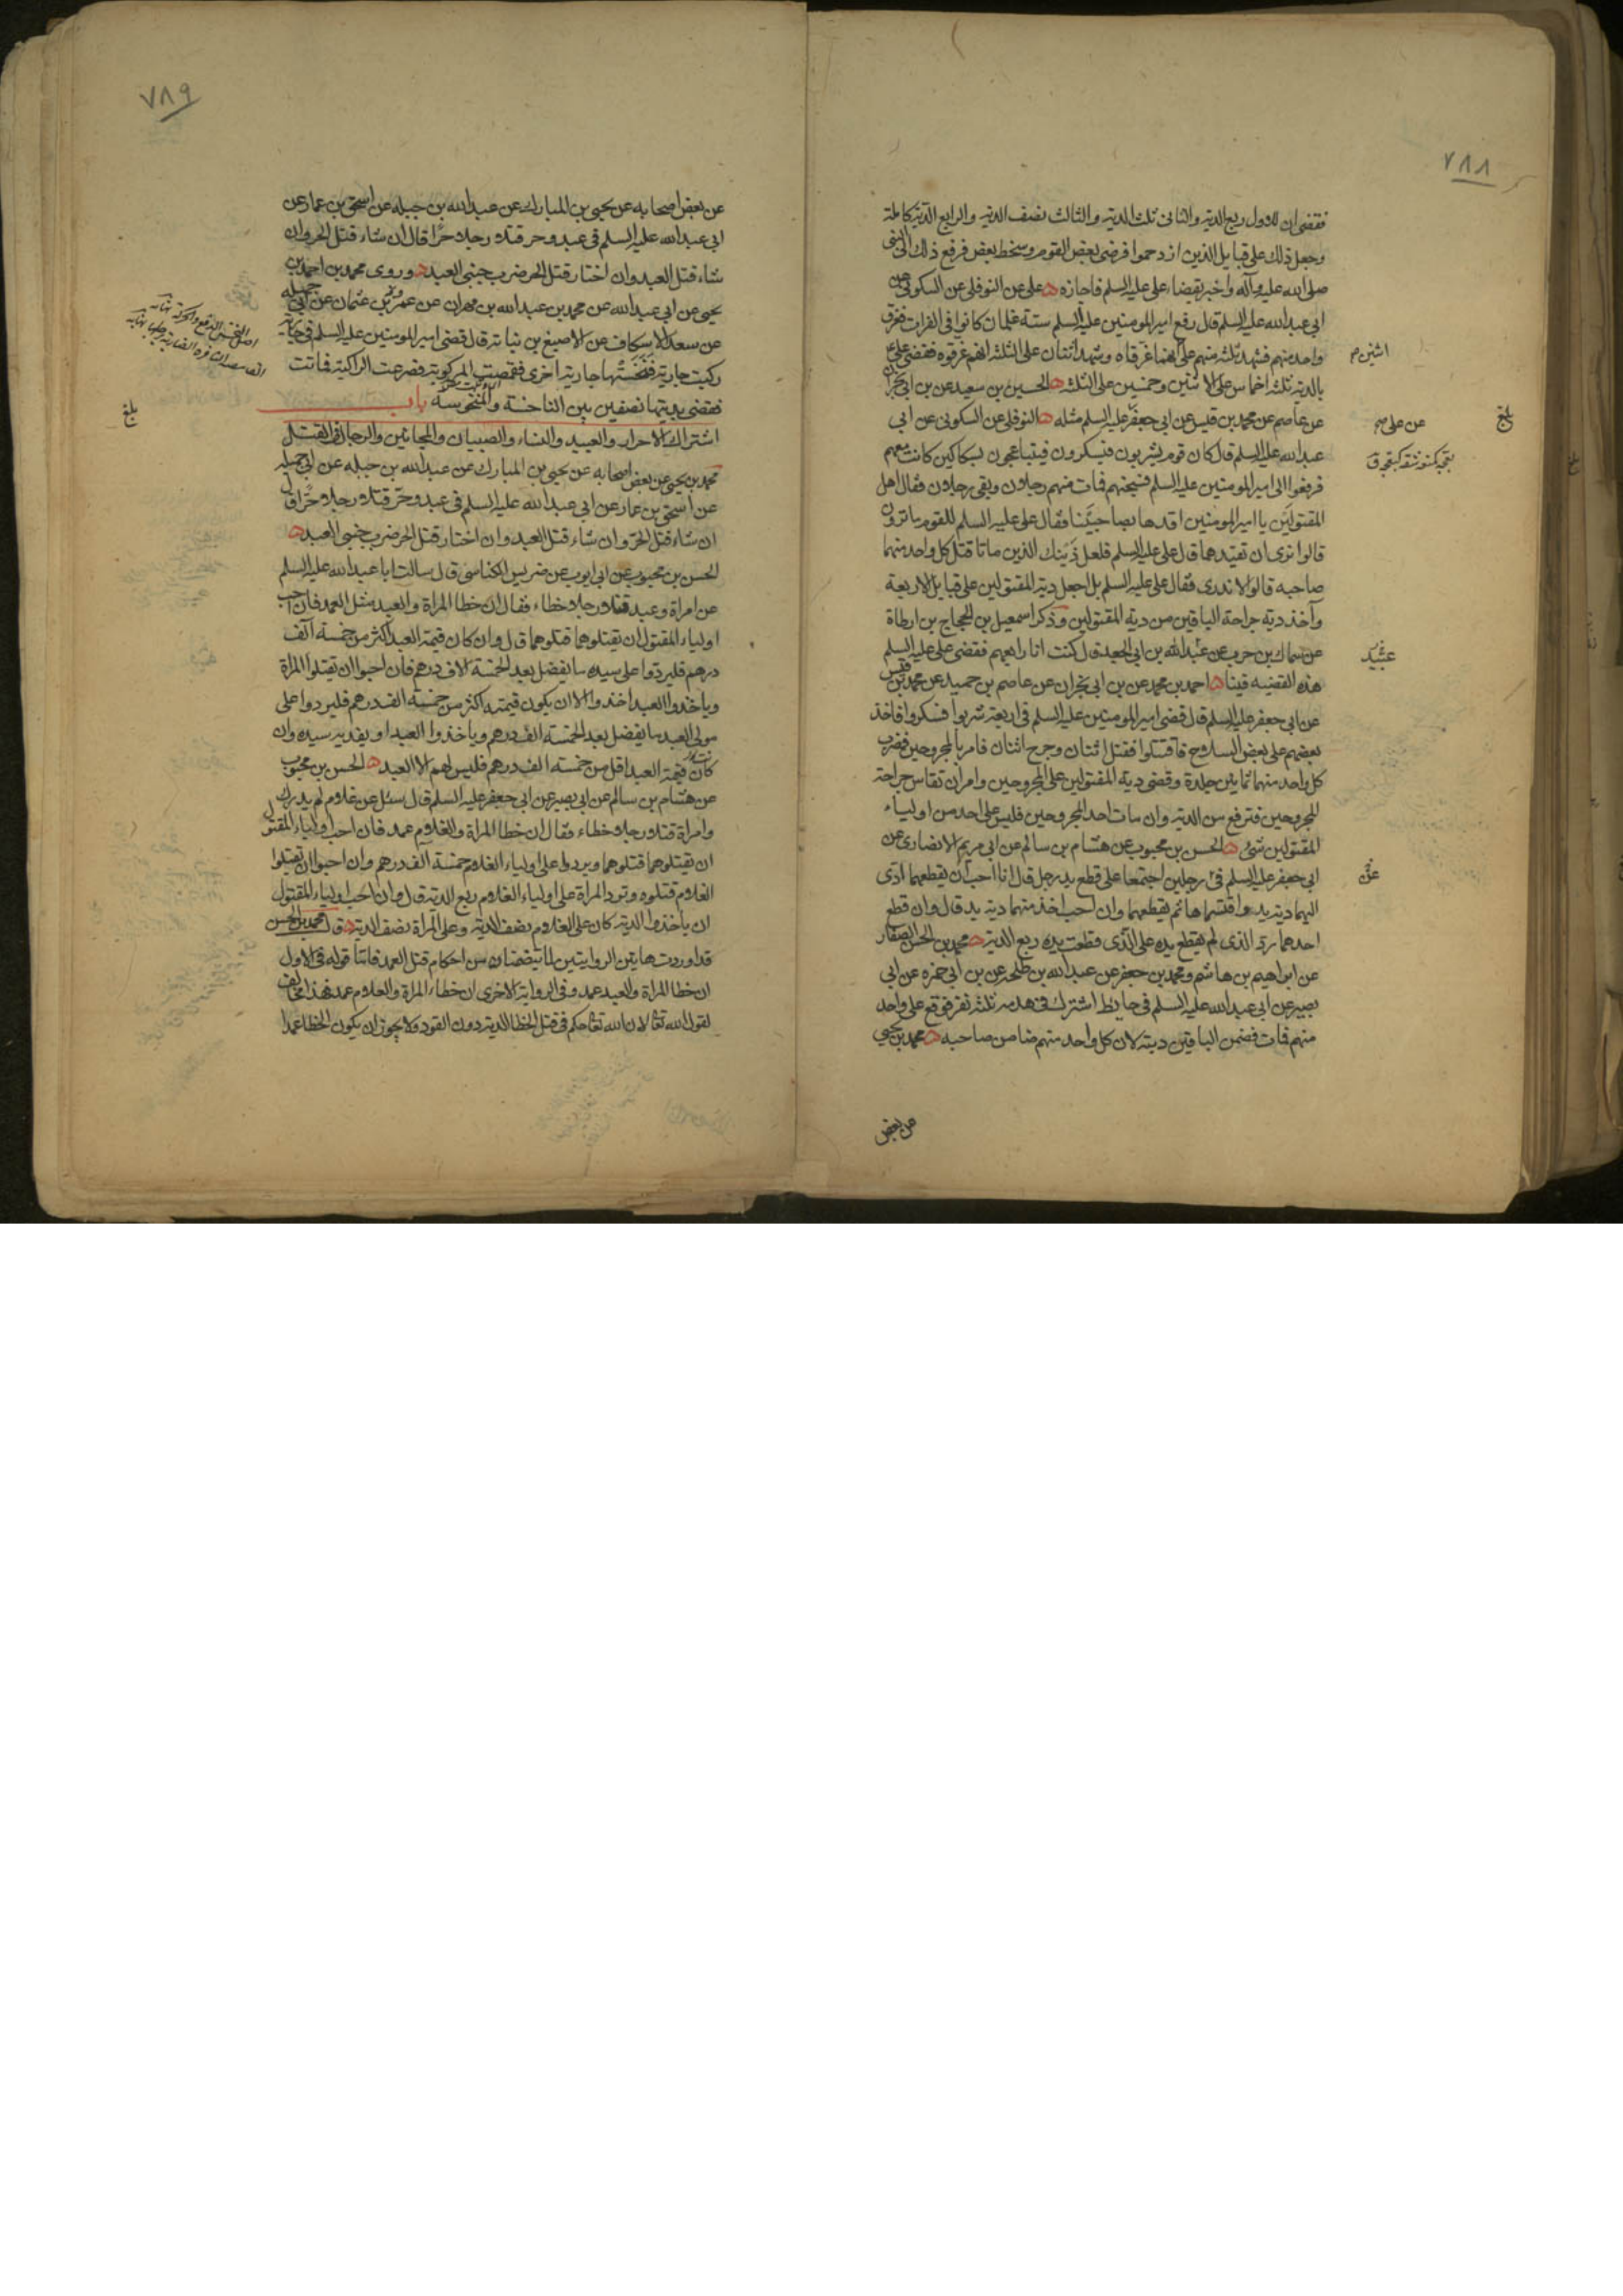 ٧٨٨
فقضى ان للاول ربع الدية والثانى ثلث الدية والثالث نصف الدية والرابع الدية كاملة
وجعل ذلك على قبايل الذين ازدحموا فرضى بعض القوم وسخط بعض فرفع ذلك الى النبى
صلى الله عليه وآله واخبر بقضاء على عليه السلم فاجازه ه على عن النوفلى عن السكونى عن
ابى عبد الله عليه السلم قال رفع امير المومنين عليه السلم ستة غلمان كانوا فى الفرات فغرق
واحد منهم فشهد ثلثه منهم على انهما غرقاه وشهد اثنان على الثلثه انهم غرقوه فقضى على ع
بالديه ثلثه اخماس على الاثنين وخمسين على الثلثه ه الحسين بن سعيد عن بن ابى نجران
عن عاصم عن محمد بن قيس عن ابى جعفر عليه السلم مثله ه النوفلى عن السكونى عن ابى
عبد الله عليه السلم قال كان قوم يشربون فيسكرون فيتباعجون بسكاكين كانت معهم
فرفعوا الى امير المومنين عليه السلم فسجنهم فمات منهم رجلان وبقى رجلان فقال اهل
المقتولين يا امير المومنين اقدهما بصاحبينا فقال على عليه السلم للقوم ما ترون
قالوا نرى ان تقيدهما قال على عليه السلم فلعل ذينك الذين ماتا قتل كل واحد منهما
صاحبه قالوا لا ندرى فقال على عليه السلم بل اجعل دية المقتولين على قبايل الاربعة
وآخذ دية جراحة الباقين من دية المقتولين وذكر اسمعيل بن الحجاج بن ارطاة
عن سماك بن حرب عن عبد الله بن ابى الجعد قال كنت انا رابعهم فقضى على عليه السلم
هذه القضيه فينا ه احمد بن محمد عن بن ابى نجران عن عاصم بن حميد عن محمد بن قيس
عن ابى جعفر عليه السلم قال قضى امير المومنين عليه السلم فى اربعة شربوا فسكروا فاخذ
بعضهم على بعض السلاح فاقتتلوا فقتل اثنان وجرح اثنان فامر بالمجروحين فضرب
كل واحد منهما ثمانين جلدة وقضى دية المقتولين على المجروحين وامر ان تقاس جراحة
المجروحين فترفع من الدية وان مات احد المجروحين فليس على احد من اولياء
المقتولين شئ ه الحسن بن محبوب عن هشام بن سالم عن ابى مريم الانصارى عن
ابى جعفر عليه السلم فى رجلين اجتمعا على قطع يد رجل قال انا احب ان يقطعهما ادى
اليهما دية يد واقتسماها ثم يقطعهما وان احب اخذ منهما دية يد قال وان قطع
احدهما رد الذى لم يقطع يده على الذى قطعت يده ربع الدية ه محمد بن الحسن الصفار
عن ابراهيم بن هاشم ومحمد بن جعفر عن عبد الله بن طلحه عن بن ابى حمزه عن ابى
بصير عن ابى عبد الله عليه السلم فى حايط اشترك فى هدمه ثلثه نفر فوقع على واحد
منهم فمات فضمن الباقين ديته لان كل واحد منهم ضامن صاحبه ه محمد بن يحيى
عن بعض
اثنين
عن على
بلغ
٧٨٩
عن بعض اصحابه عن يحيى بن المبارك عن عبد الله بن جبله عن اسحق بن عمار عن
ابى عبد الله عليه السلم فى عبد وحر قتلا رجلا حرا قال ان شاء قتل الحر وان
شاء قتل العبد وان اختار قتل الحر ضرب جنبى العبد ه وروى محمد بن احمد بن
يحيى عن ابى عبد الله عن محمد بن عبد الله بن مهران عن عمرو بن عثمان عن ابى جميله
عن سعد الاسكاف عن الاصبغ بن نباتة قال قضى امير المومنين عليه السلم فى جارية
ركبت جارية فنخستها جارية اخرى فقمصت المركوبة فصرعت الراكبة فماتت
فقضى بديتها نصفين بين الناخسة والمنخوسة باب
اشتراك الاحرار والعبيد والنساء والصبيان والمجانين والرجال فى القتل
محمد بن يحيى عن بعض اصحابه عن يحيى بن المبارك عن عبد الله بن جبله عن ابى جميله
عن اسحق بن عمار عن ابى عبد الله عليه السلم فى عبد وحر قتلا رجلا حرا قال
ان شاء قتل الحر وان شاء قتل العبد وان اختار قتل الحر ضرب جنبى العبد ه
الحسن بن محبوب عن ابى ايوب عن ضريس الكناسى قال سالت ابا عبد الله عليه السلم
عن امراة وعبد قتلا رجلا خطاء فقال ان خطا المراة والعبد مثل العمد فان احب
اولياء المقتول ان يقتلوهما قتلوهما قال وان كان قيمة العبد اكثر من خمسة آلف
درهم فليردوا على سيده ما يفضل بعد الخمسة الاف درهم فان احبوا ان يقتلوا المراة
وياخذوا العبد اخذوا الا ان يكون قيمته اكثر من خمسة الف درهم فليردوا على
مولى العبد ما يفضل بعد الخمسة الف درهم وياخذوا العبد او يفديه سيده وان
كانت قيمة العبد اقل من خمسه الف درهم فليس لهم الا العبد ه الحسن بن محبوب
عن هشام بن سالم عن ابى بصير عن ابى جعفر عليه السلم قال سئل عن غلام لم يدرك
وامراة قتلا رجلا خطاء فقال ان خطا المراة والغلام عمد فان احب اولياء المقتول
ان يقتلوهما قتلوهما ويردوا على اولياء الغلام خمسة الف درهم وان احبوا ان يقتلوا
الغلام قتلوه وترد المراة على اولياء الغلام ربع الدية قال وان احب اولياء المقتول
ان ياخذوا الدية كان على الغلام نصف الدية وعلى المراة نصف الدية ه قال محمد بن الحسن
قد اوردت هاتين الروايتين لما تتضمنان من احكام قتل العمد فاما قوله فى الاول
ان خطا المراة والعبد عمد وفى الرواية الاخرى ان خطاء المراة والغلام عمد فهذا مخالف
لقول الله تعالى لان الله تعالى حكم فى قتل الخطا الدية دون القود ولا يجوز ان يكون الخطا عمدا
اصل النخس الدفع والحركة نهايه
بلغ